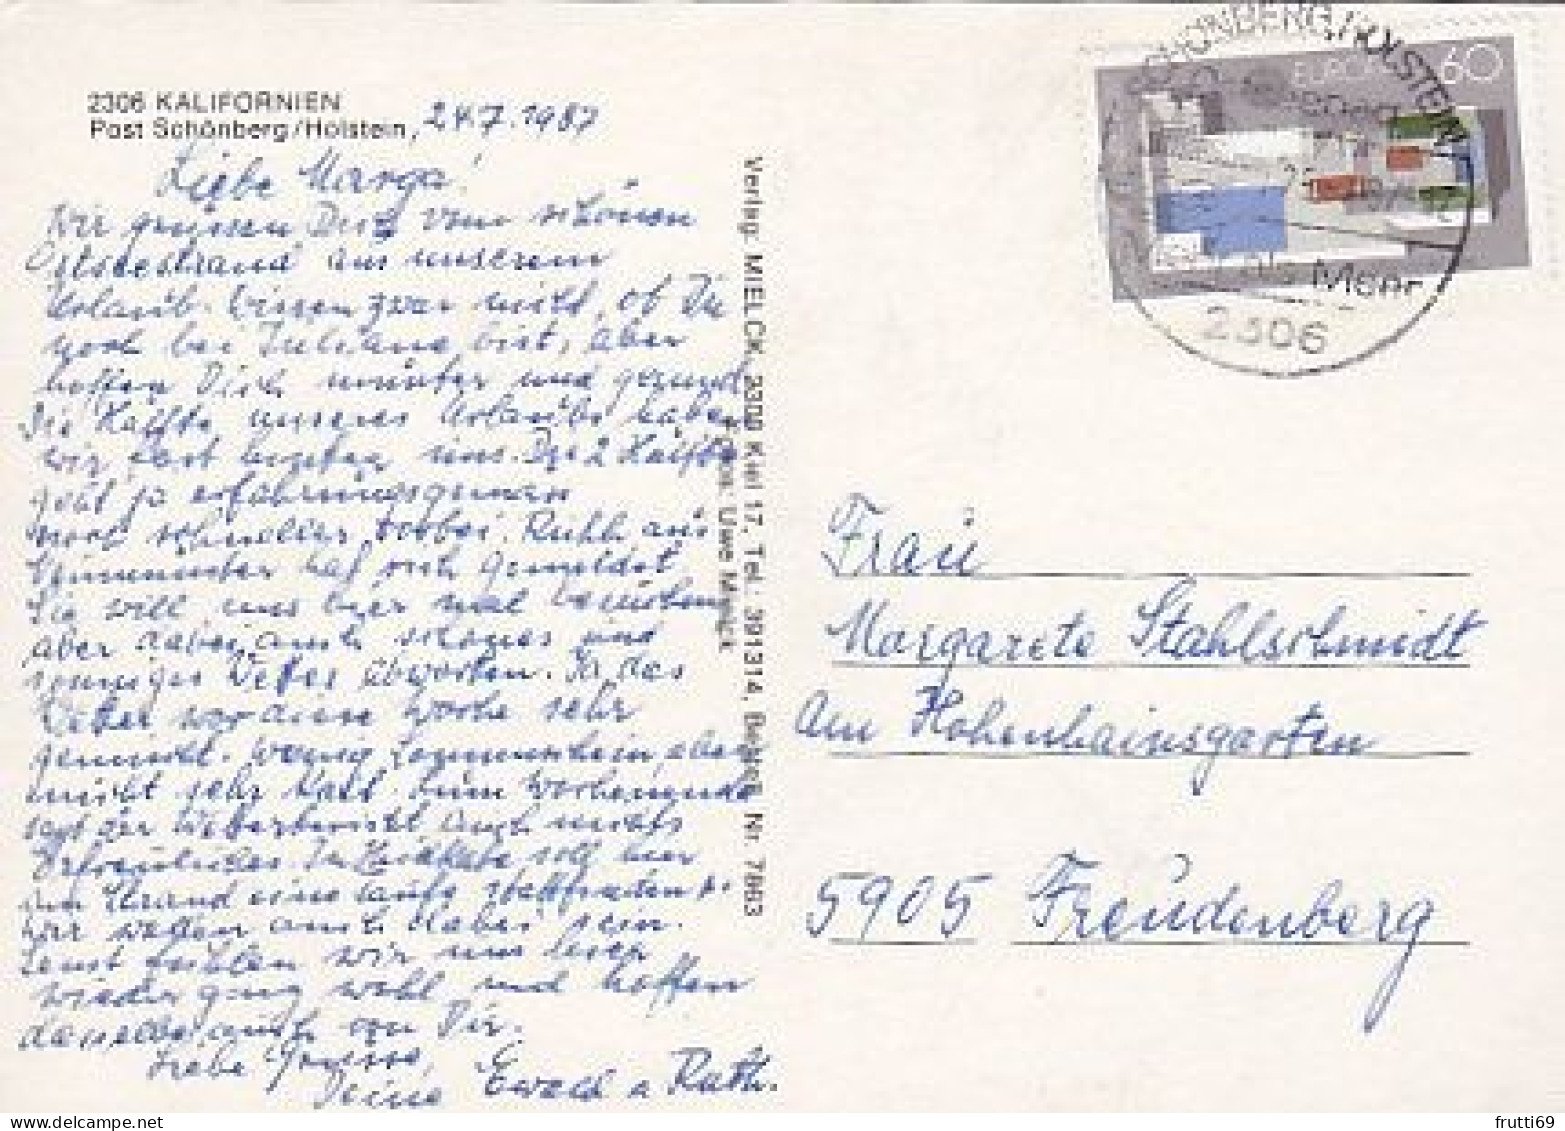 2306 KALIFORNIEN
Post Schönberg/Holstein, 24.7.1987
Liebe Marga!
Wir grüssen Dich vom schönen
Ostseestrand aus unserem
Urlaub. Wissen zwar nicht, ob Du
noch bei Juliane bist, aber
hoffen Dich munter und gesund.
Die Hälfte unseres Urlaubs haben
wir fast hinter uns. Die 2 Hälfte
geht ja erfahrungsgemäss
noch schneller vorbei. Ruth aus
hat sich gemeldet
Sie will uns hier mal besuchen
aber dabei auch schönes und
sonniges Wetter abwarten. Ja das
Wetter war diese Woche sehr
gemischt. Wenig Sonnenschein, aber
nicht sehr kalt. Zum Wochenende
sagt der Wetterbericht auch nichts
Erfreuliches. In soll hier
am Strand eine stattfinden.
Wir wollen auch dabei sein.
Sonst fühlen wir uns hier
wieder ganz wohl und hoffen
dasselbe auch von Dir.
Liebe Grüsse,
Deine Ewald u Ruth.
Verlag: MIELCK, 2300 Kiel 17, Tel.: 391314, Bestell. Nr. 7883
Fotos: Uwe Mielck
SCHÖNBERG, HOLSTEIN
EUROPA 60
als Meer
2306
Frau
Margarete Stahlschmidt
Am Hohenhainsgarten
5905 Freudenberg
frutti69